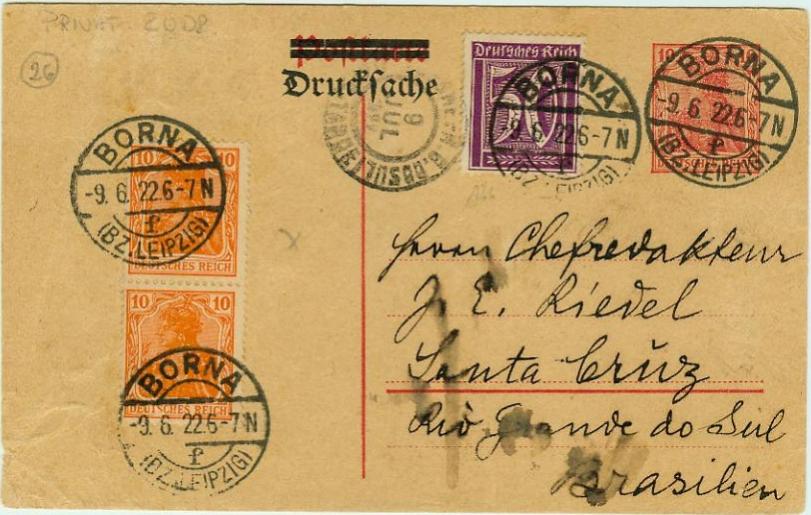 PRIVAT 2008
26
Postkarte
Drucksache
Deutsches Reich
50
10
DEUTSCHES REICH
BORNA
-9. 6. 22.6-7N
f
(BZ. LEIPZIG)
BORNA
-9. 6. 22.6-7N
f
(BZ. LEIPZIG)
9
JUL
10 10
DEUTSCHES REICH
BORNA
-9. 6. 22.6-7N
f
(BZ. LEIPZIG)
10 10
DEUTSCHES REICH
BORNA
-9. 6. 22.6-7N
f
(BZ. LEIPZIG)
Herrn Chefredakteur
J. E. Riedel
Santa Crŭz
Rio Grande do Sul
Brasilien